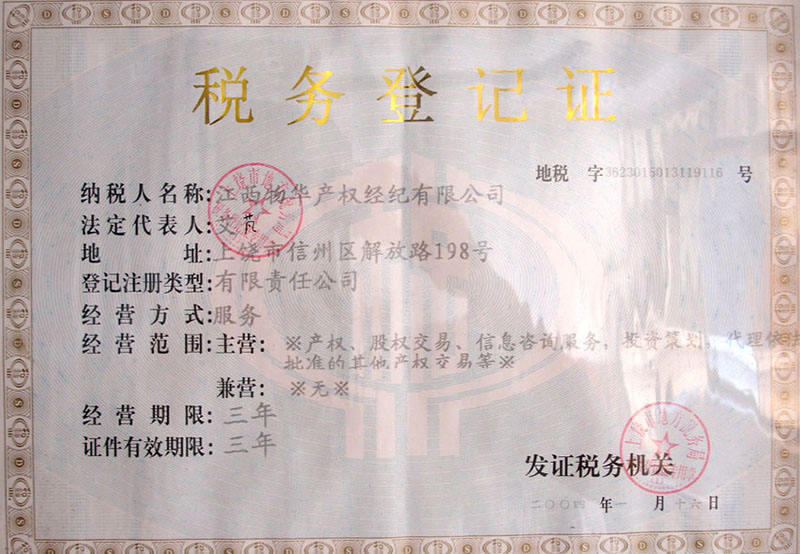 税务登记证
地税 字3623015013119116 号
纳税人名称:江西物华产权经纪有限公司
法定代表人:艾芃
地 址:上饶市信州区解放路198号
登记注册类型:有限责任公司
经营方式:服务
经营范围:主营:※产权、股权交易、信息咨询服务，投资策划，代理依法
批准的其他产权交易等※
兼营:※无※
经营期限:三年
证件有效期限:三年
上饶市地方税务局
发证税务机关
二〇〇四年一月十六日